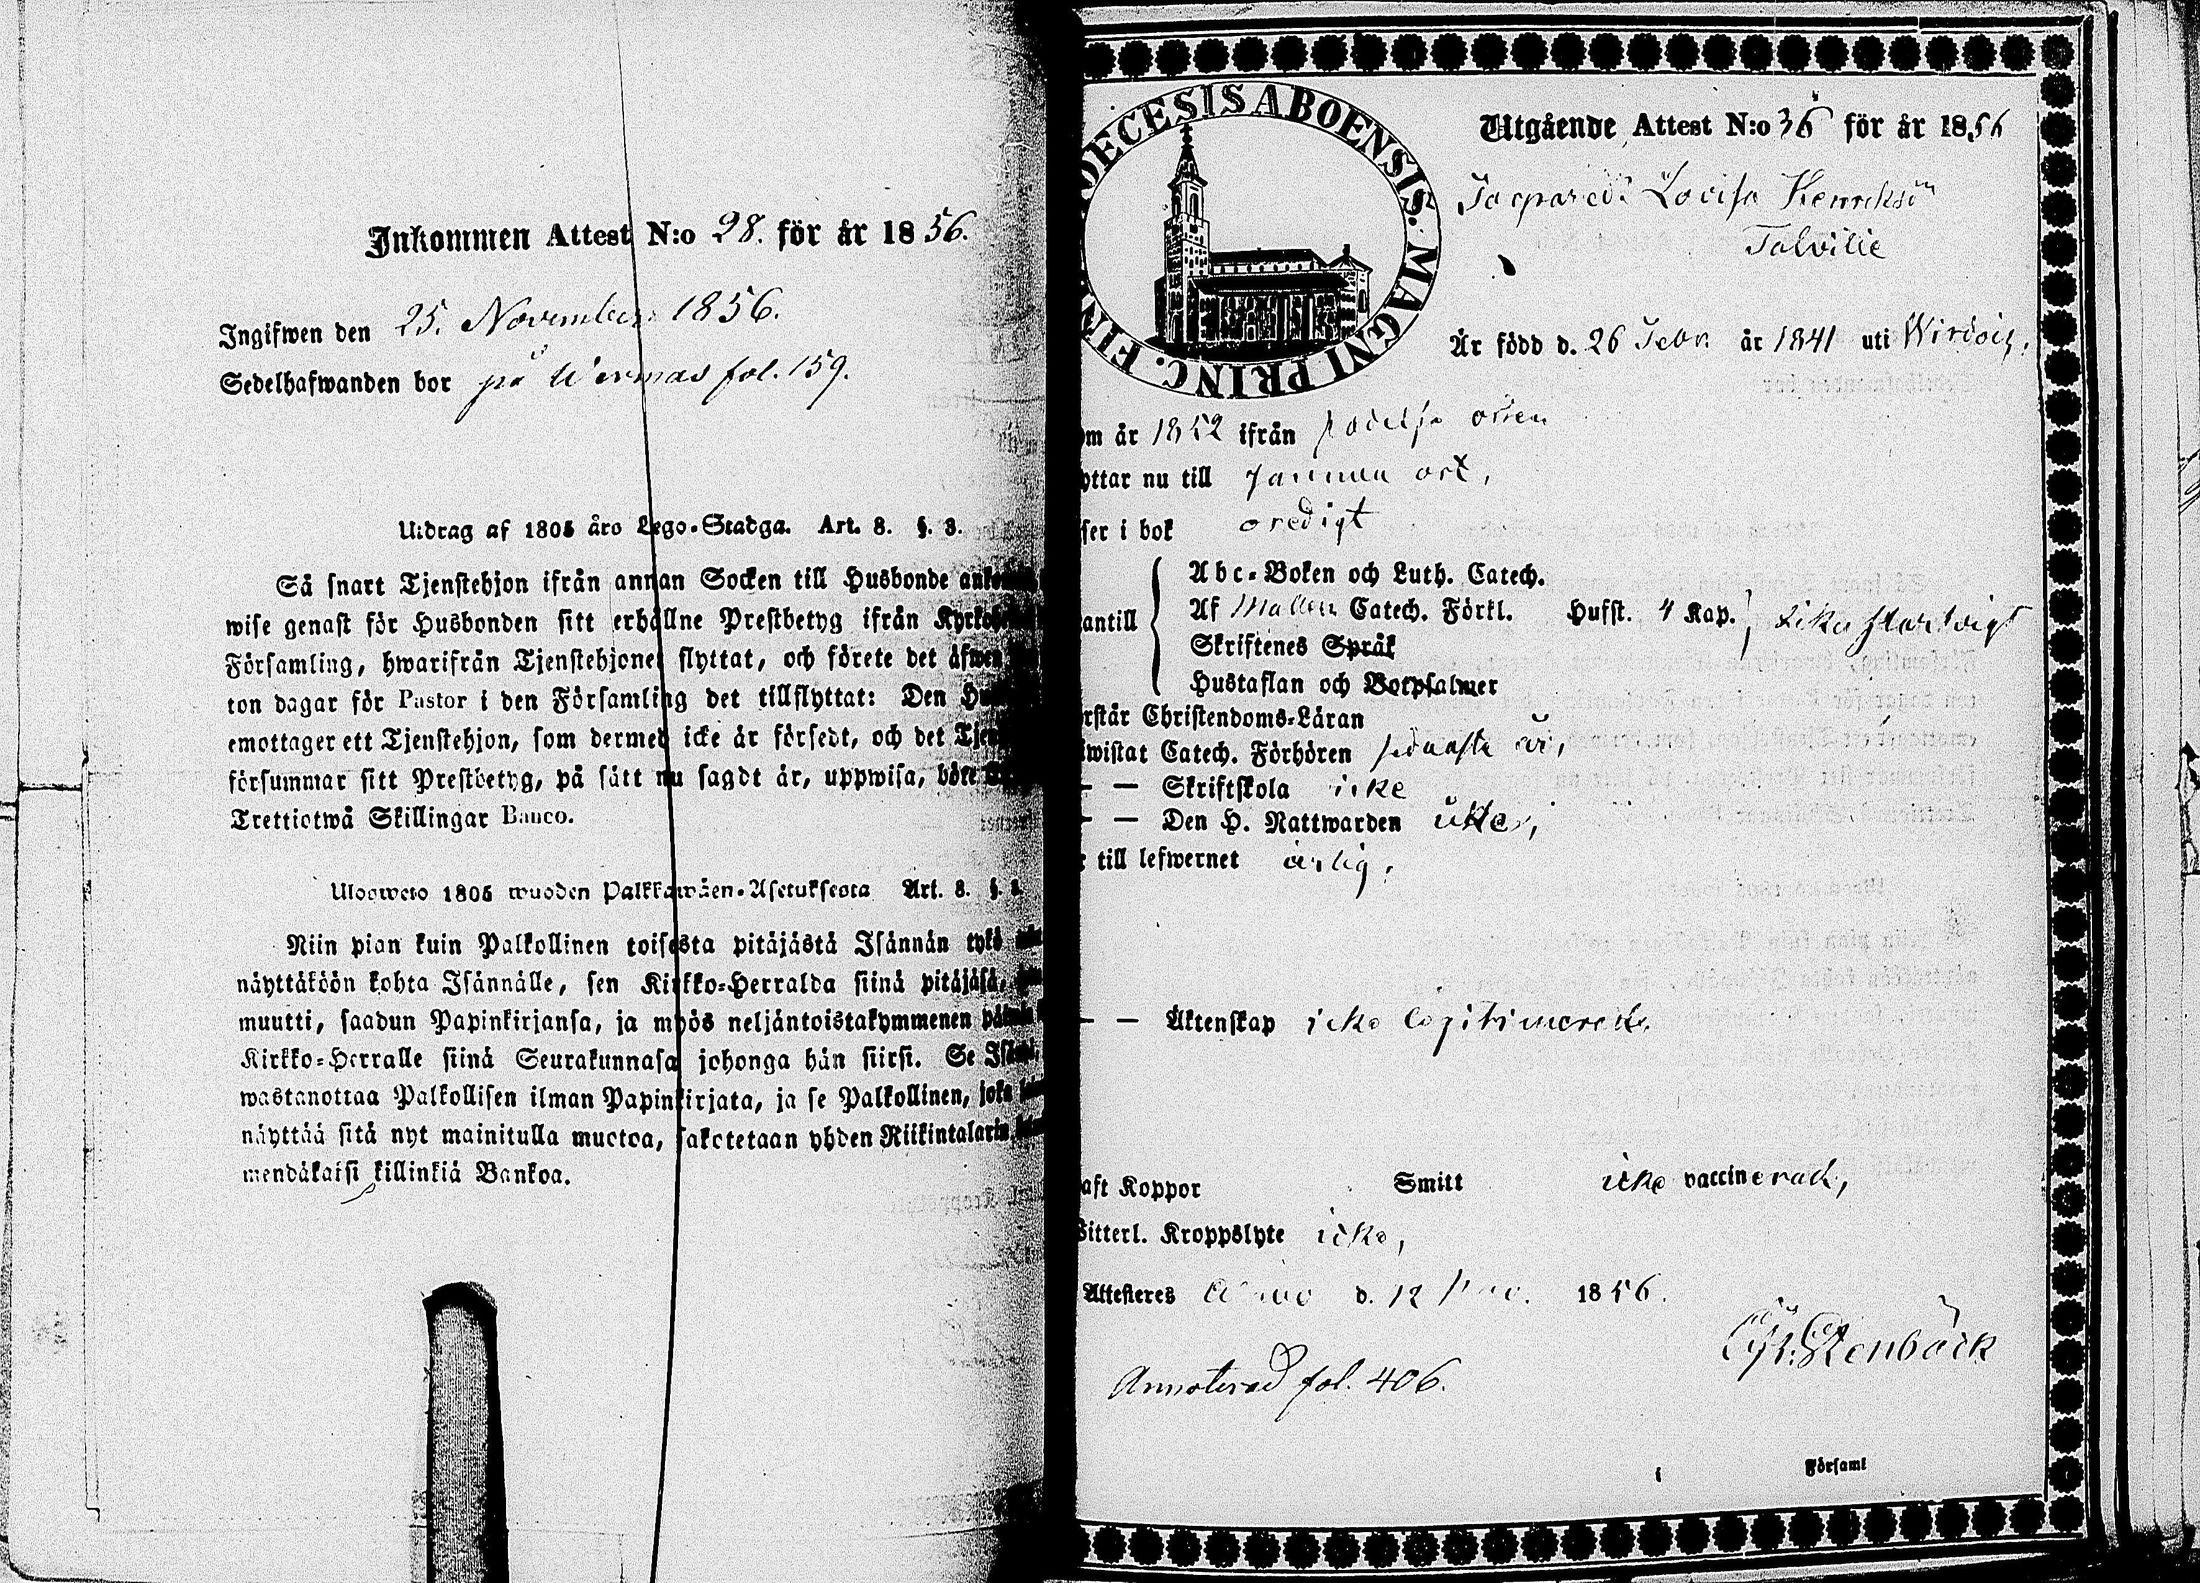 Inkommen Attest N:o 28. för år 1856.
Ingifwen den 25. November 1856.
Sedelhafwanden bor på Wermas fol. 159.
Utdrag af 1805 års Lego-Stadga. Art. 8. §. 3.
Så snart Tjenstehjon ifrån annan Socken till Husbonde
wise genast för Husbonden sitt erhållne Prestbetyg ifrån
Församling, hwarifrån Tjenstehjonet flyttat, och förete det äfwen
ton dagar för Pastor i den Församling det tillflyttat: Den
emottager ett Tjenstehjon, som dermed icke är försedt, och det
försummar sitt Prestbetyg, på sätt nu sagdt är, uppwisa, böte
Trettiotwå Skillingar Banco.
Ulosweto 1805 wuoden Palkkawäen-Asetuksesta Art. 8. §.
Niin pian kuin Palkollinen toisesta pitäjästä Isännän tykö
näyttäköön kohta Isännälle, sen Kirkko-Herralda siinä pitäjäsä,
muutti, saadun Papinkirjansa, ja myös neljäntoistakymmenen
Kirkko-Herralle siinä Seurakunnasa johonga hän siirsi. Se
wastanottaa Palkollisen ilman Papinkirjata, ja se Palkollinen, joka
näyttää sitä nyt mainitulla muotoa, sakotetaan yhden Riikintalarin
mendäkaksi killinkiä Bankoa.
DIOECESIS ABOENSIS. MAGNI PRINC. FIN
Utgående Attest N:o 36 för år 1856
Lovisa Henriks
Är född d. 26 Febr. år 1841 uti Wirdois,
om år 1852 ifrån
yttar nu till samma ort,
ser i bok oredigt
Abc-Boken och Luth. Catech.
antill Af Mallen Catech. Förkl. Husst. 4 Kap. lika
Skriftenes Språk
Hustaflan och Botpsalmer
rstår Christendoms-Läran
wistat Catech. Förhören sednaste år,
— — Skriftskola icke
— — Den H. Nattwarden icke,
r till lefwernet ärlig,
— — Äktenskap icke legitimerad.
aft Koppor Smitt icke vaccinerad,
Witterl. Kroppslyte icke,
Attesteres d. 12 Nov. 1856.
Stenbäck
Annoterad fol. 406.
Församl